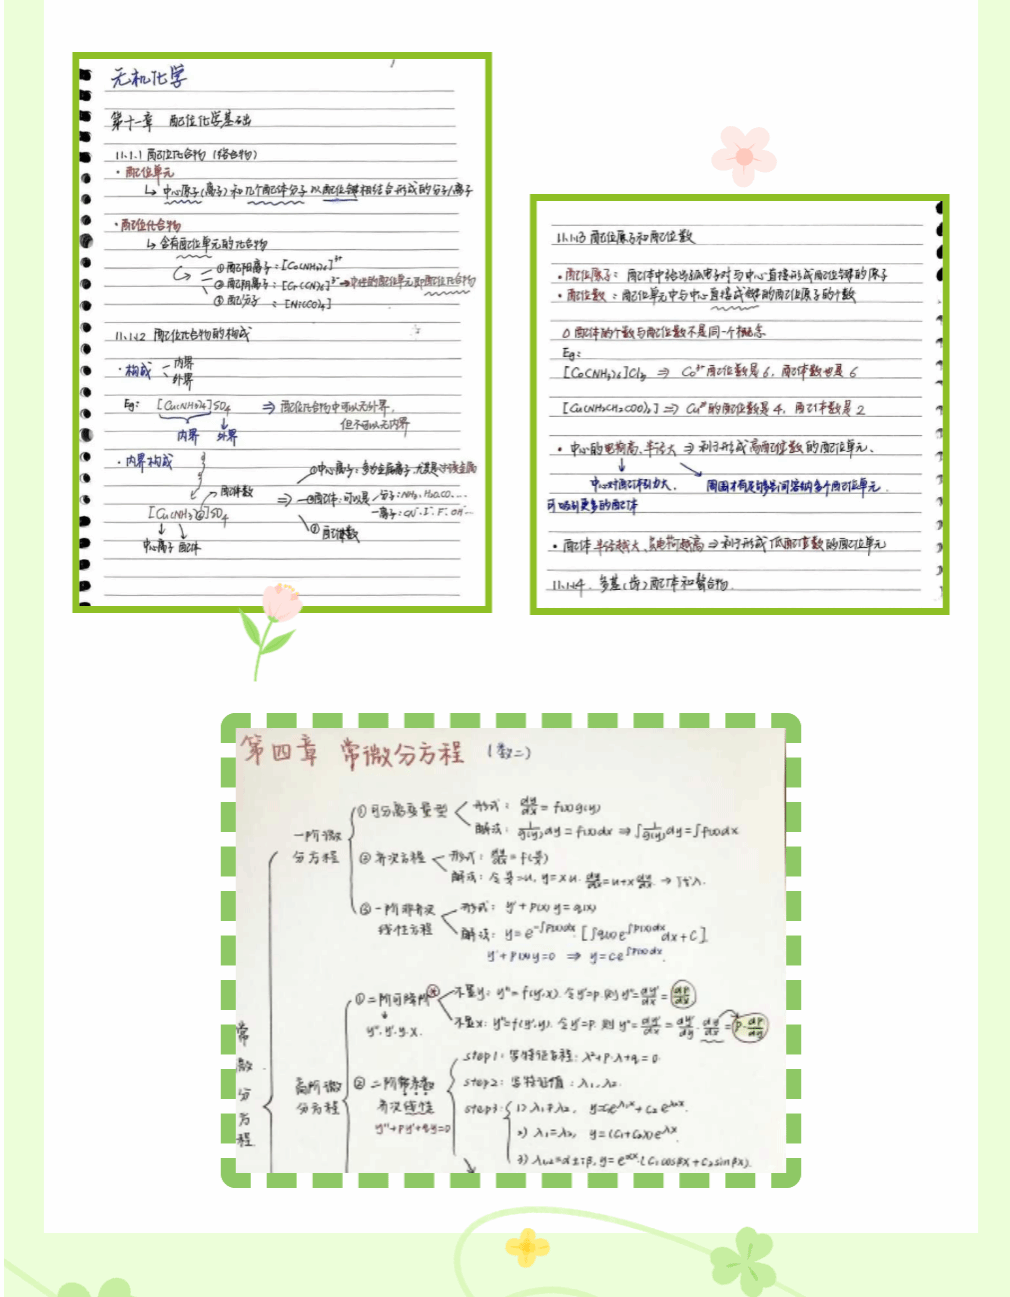 无机化学
第十一章 配位化学基础
11.1.1 配位化合物（络合物）
·配位单元
↳ 中心原子(离子)和几个配体分子以配位键相结合形成的分子/离子
·配位化合物
↳ 含有配位单元的化合物
①配阳离子：[Co(NH₃)₆]³⁺
②配阴离子：[Cr(CN)₆]³⁻ → 中性的配位单元即配位化合物
③配分子：[Ni(CO)₄]
11.1.2 配位化合物的构成
·构成 内界
外界
Eg: [Cu(NH₃)₄]SO₄ ⇒ 配位化合物中可以无外界，
但不可以无内界
内界 外界
·内界构成
①中心离子：多为金属离子，尤其是过渡金属
配体数
⇒ ②配体：可以是 分子：NH₃、H₂O、CO……
[Cu(NH₃)₄]SO₄
离子：CN⁻、I⁻、F⁻、OH⁻…
③配体数
中心离子 配体
11.1.3 配位原子和配位数
·配位原子：配体中给出孤电子对与中心直接形成配位键的原子
·配位数：配位单元中与中心直接成键的配位原子的个数
配体的个数与配位数不是同一个概念
Eg:
[Co(NH₃)₆]Cl₃ ⇒ Co³⁺配位数是6，配体数也是6
[Cu(NH₂CH₂COO)₂] ⇒ Cu²⁺的配位数是4，配体数是2
·中心的电荷高、半径大 ⇒ 利于形成高配位数的配位单元、
中心对配体引力大、 周围才有足够空间容纳多个配位单元.
可吸引更多的配体
·配体半径越大、负电荷越高 ⇒ 利于形成低配位数的配位单元
11.1.4. 多基(齿)配体和螯合物.
第四章 常微分方程 (数二)
常微分方程
一阶微分方程
①可分离变量型
形式：dy/dx = f(x)g(y)
解法：1/g(y) dy = f(x)dx ⇒ ∫1/g(y) dy = ∫f(x)dx
②齐次方程
形式：dy/dx = f(y/x)
解法：令 y/x = u, y = xu. dy/dx = u + x du/dx. → 代入.
③一阶非齐次线性方程
形式：y' + P(x)y = q(x)
解法：y = e^(-∫P(x)dx) [∫q(x)e^(∫P(x)dx) dx + C]
y' + P(x)y = 0 ⇒ y = Ce^(-∫P(x)dx).
高阶微分方程
①二阶可降阶
y''. y'. y. x.
不显y: y'' = f(y', x). 令y' = p. 则 y'' = dy'/dx = dp/dx
不显x: y'' = f(y', y). 令y' = p. 则 y'' = dy'/dx = dy'/dy · dy/dx = p·dp/dy
②二阶常系数齐次线性
y'' + Py' + qy = 0
step1: 写特征方程：λ² + P·λ + q = 0
step2: 写特征值：λ₁, λ₂.
step3: 1) λ₁≠λ₂, y = C₁e^(λ₁x) + C₂e^(λ₂x).
2) λ₁=λ₂, y = (C₁+C₂x)e^(λx)
3) λ₁,₂ = α±iβ, y = e^(αx)·(C₁cosβx + C₂sinβx).